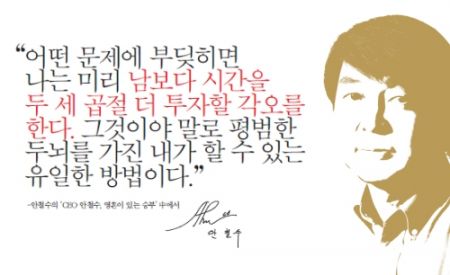 “어떤 문제에 부딪히면
나는 미리 남보다 시간을
두 세 곱절 더 투자할 각오를
한다. 그것이야 말로 평범한
두뇌를 가진 내가 할 수 있는
유일한 방법이다.”
-안철수의 'CEO 안철수, 영혼이 있는 승부' 中에서
안 철 수